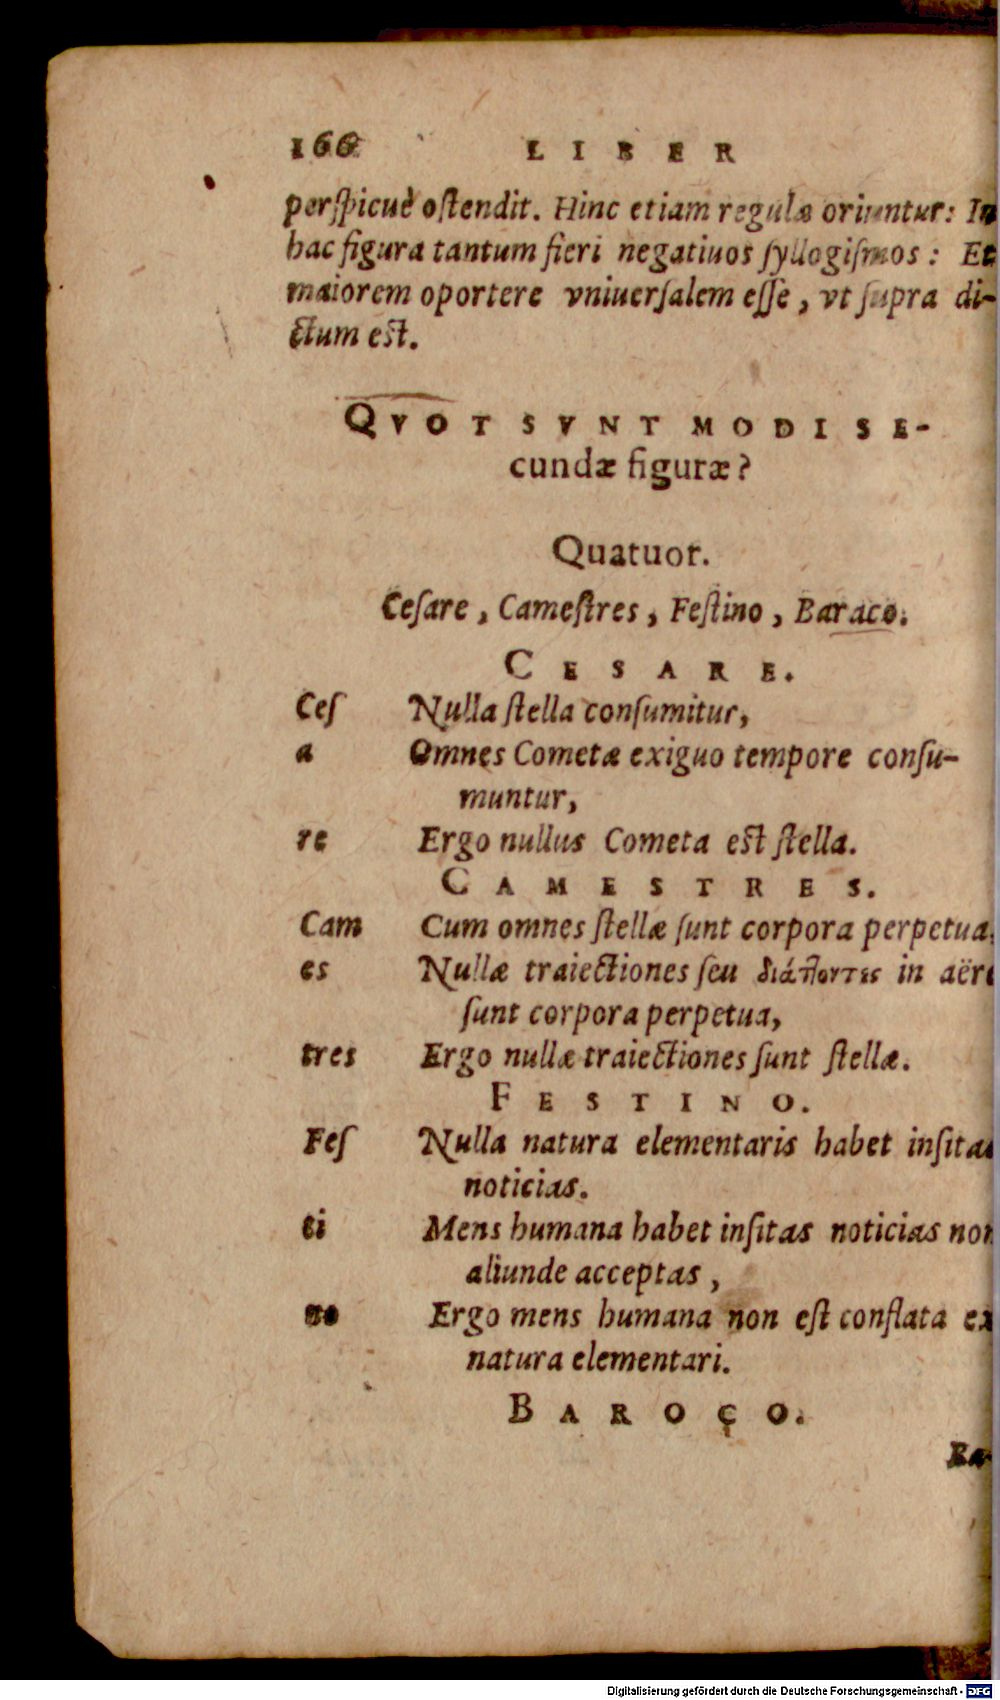 166 LIBER
perſpicuè oſtendit. Hinc etiam regulæ oriuntur: In
hac figura tantum fieri negatiuos ſyllogiſmos: Et
maiorem oportere vniuerſalem eſſe, vt ſupra di-
ctum eſt.
QVOT SVNT MODI SE-
cundæ figuræ?
Quatuor.
Ceſare, Cameſtres, Feſtino, Baraco.
CESARE.
Ceſ Nulla ſtella conſumitur,
a Omnes Cometæ exiguo tempore conſu-
muntur,
re Ergo nullus Cometa eſt ſtella.
CAMESTRES.
Cam Cum omnes ſtellæ ſunt corpora perpetua,
es Nullæ traiectiones ſeu διάπλοντες in aëre
ſunt corpora perpetua,
tres Ergo nullæ traiectiones ſunt ſtellæ.
FESTINO.
Feſ Nulla natura elementaris habet inſitas
noticias.
ti Mens humana habet inſitas noticias non
aliunde acceptas,
no Ergo mens humana non eſt conflata ex
natura elementari.
BAROÇO.
Ba-
Digitalisierung gefördert durch die Deutsche Forschungsgemeinschaft - DFG